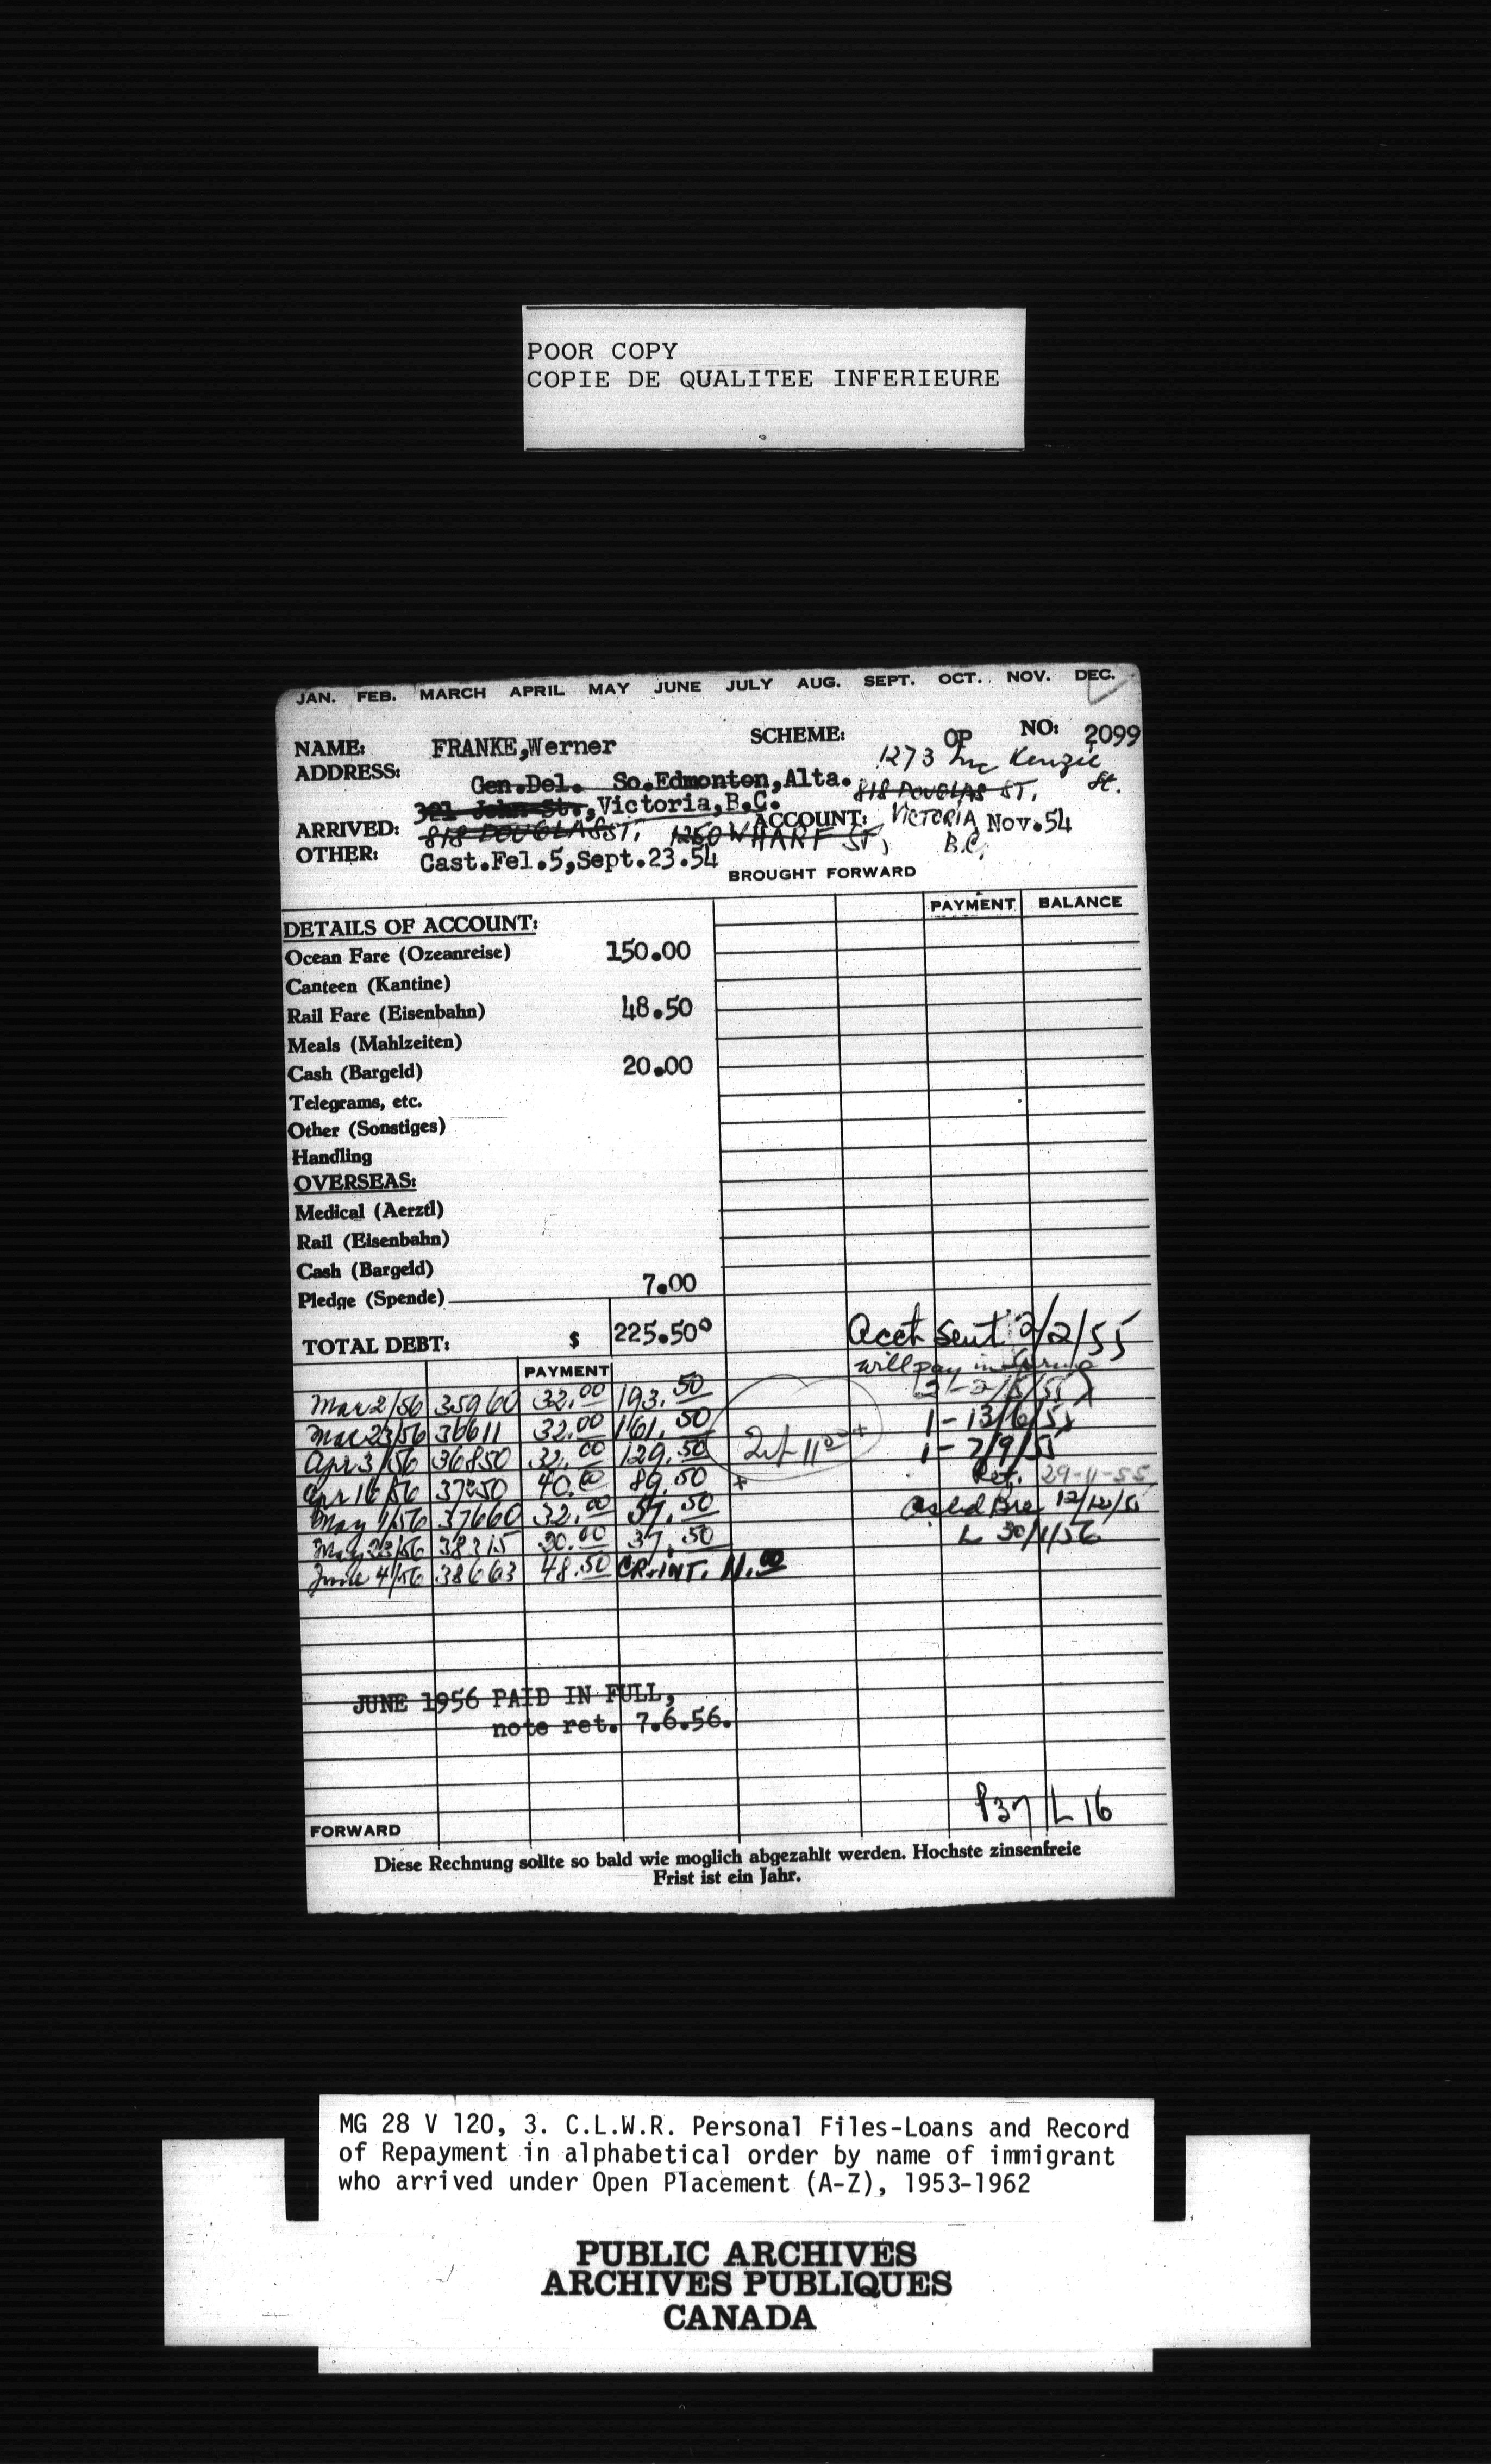 POOR COPY
COPIE DE QUALITEE INFERIEURE
JAN. FEB. MARCH APRIL MAY JUNE JULY AUG. SEPT. OCT. NOV. DEC.
NAME: FRANKE,Werner SCHEME: OP NO: 2099
ADDRESS: 1273 Mc Kenzie St.
Gen.Del. So.Edmonton,Alta. 818 DOUGLAS ST,
321 John St.,Victoria,B.C.
ARRIVED: 818 DOUGLAS ST, 1250 WHARF ST, ACCOUNT: VICTORIA B.C. Nov.54
OTHER: Cast.Fel.5,Sept.23.54
BROUGHT FORWARD
PAYMENT BALANCE
DETAILS OF ACCOUNT:
Ocean Fare (Ozeanreise) 150.00
Canteen (Kantine)
Rail Fare (Eisenbahn) 48.50
Meals (Mahlzeiten)
Cash (Bargeld) 20.00
Telegrams, etc.
Other (Sonstiges)
Handling
OVERSEAS:
Medical (Aerztl)
Rail (Eisenbahn)
Cash (Bargeld)
Pledge (Spende) 7.00
TOTAL DEBT: $ 225.50 Acct sent 2/2/55
PAYMENT will pay in
Mar 2/56 35960 32.00 193.50
Mar 23/56 36611 32.00 161.50 1-13/6/55
Apr 3/56 36850 32.00 129.50 Int 11.00 + 1-7/9/55
Apr 16/56 37250 40.00 89.50 + Ref. 29-11-55
May 1/56 37660 32.00 57.50 12/12/55
May 23/56 38315 20.00 37.50 L 30/1/56
June 4/56 38663 48.50 CR.INT. 11.00
JUNE 1956 PAID IN FULL,
note ret. 7.6.56.
P37 L 16
FORWARD
Diese Rechnung sollte so bald wie moglich abgezahlt werden. Hochste zinsenfreie
Frist ist ein Jahr.
MG 28 V 120, 3. C.L.W.R. Personal Files-Loans and Record
of Repayment in alphabetical order by name of immigrant
who arrived under Open Placement (A-Z), 1953-1962
PUBLIC ARCHIVES
ARCHIVES PUBLIQUES
CANADA